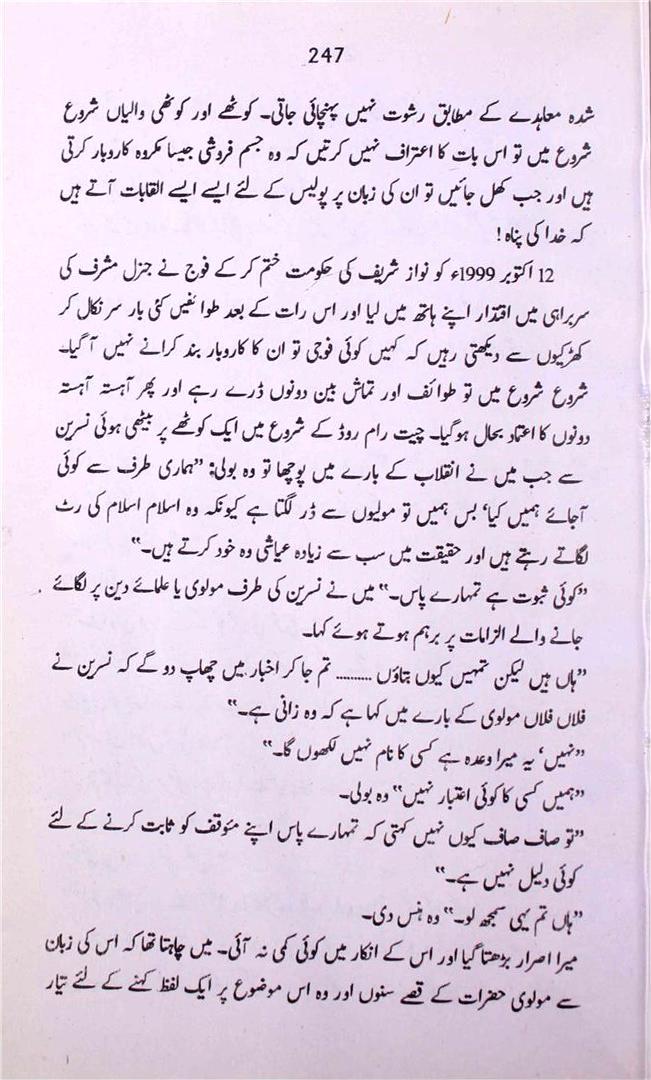 247
شدہ معاہدے کے مطابق رشوت نہیں پہنچائی جاتی۔ کوٹھے اور کوٹھی والیاں شروع
شروع میں تو اس بات کا اعتراف نہیں کرتیں کہ وہ جسم فروشی جیسا مکروہ کاروبار کرتی
ہیں اور جب کھل جائیں تو ان کی زبان پر پولیس کے لئے ایسے ایسے القابات آتے ہیں
کہ خدا کی پناہ!
12 اکتوبر 1999ء کو نواز شریف کی حکومت ختم کر کے فوج نے جنرل مشرف کی
سربراہی میں اقتدار اپنے ہاتھ میں لیا اور اس رات کے بعد طوائفیں کئی بار سر نکال کر
کھڑکیوں سے دیکھتی رہیں کہ کہیں کوئی فوجی تو ان کا کاروبار بند کرانے نہیں آ گیا۔
شروع شروع میں تو طوائف اور تماش بین دونوں ڈرے رہے اور پھر آہستہ آہستہ
دونوں کا اعتماد بحال ہوگیا۔ چیت رام روڈ کے شروع میں ایک کوٹھے پر بیٹھی ہوئی نسرین
سے جب میں نے انقلاب کے بارے میں پوچھا تو وہ بولی: ”ہماری طرف سے کوئی
آجائے ہمیں کیا‘ بس ہمیں تو مولیوں سے ڈر لگتا ہے کیونکہ وہ اسلام اسلام کی رٹ
لگاتے رہتے ہیں اور حقیقت میں سب سے زیادہ عیاشی وہ خود کرتے ہیں۔“
”کوئی ثبوت ہے تمہارے پاس۔“ میں نے نسرین کی طرف مولوی یا علمائے دین پر لگائے
جانے والے الزامات پر برہم ہوتے ہوئے کہا۔
”ہاں ہیں لیکن تمہیں کیوں بتاؤں ......... تم جا کر اخبار میں چھاپ دو گے کہ نسرین نے
فلاں فلاں مولوی کے بارے میں کہا ہے کہ وہ زانی ہے۔“
”نہیں‘ یہ میرا وعدہ ہے کسی کا نام نہیں لکھوں گا۔“
”ہمیں کسی کا کوئی اعتبار نہیں“ وہ بولی۔
”تو صاف صاف کیوں نہیں کہتی کہ تمہارے پاس اپنے مئوقف کو ثابت کرنے کے لئے
کوئی دلیل نہیں ہے۔“
”ہاں تم یہی سمجھ لو۔“ وہ ہنس دی۔
میرا اصرار بڑھتا گیا اور اس کے انکار میں کوئی کمی نہ آئی۔ میں چاہتا تھا کہ اس کی زبان
سے مولوی حضرات کے قصے سنوں اور وہ اس موضوع پر ایک لفظ کہنے کے لئے تیار